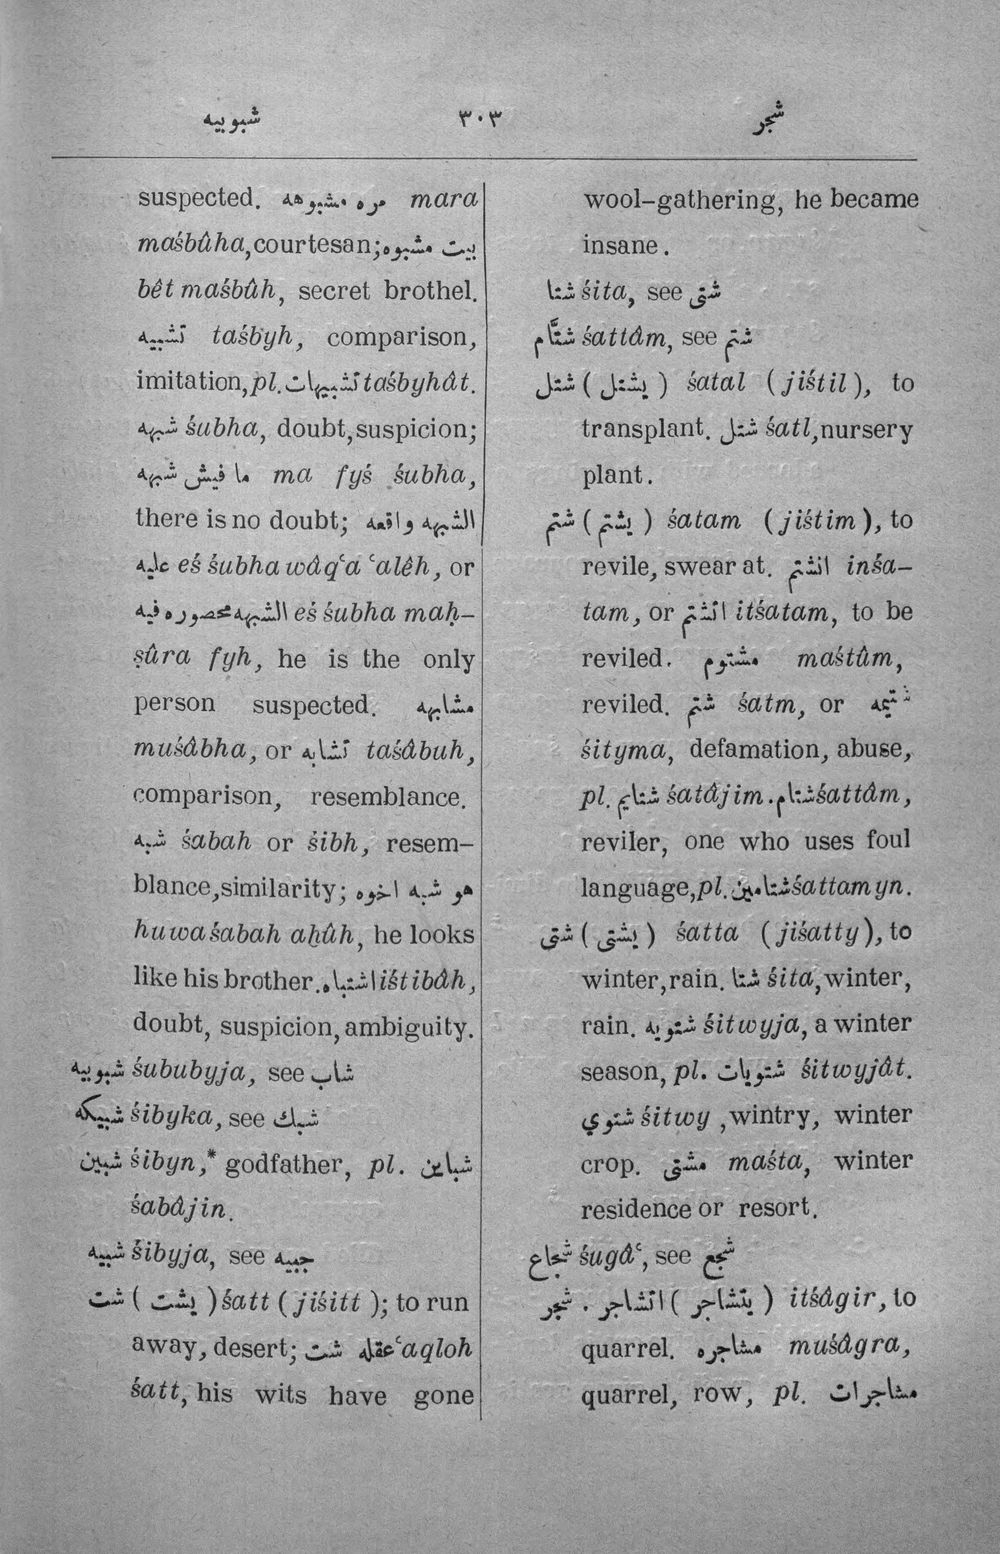 شبوبيه ٣٠٣ شجر
suspected. مره مشبوهه mara
maśbûha, courtesan; بيت مشبوه
bêt maśbûh, secret brothel.
تشبيه taśbyh, comparison,
imitation, pl. تشبيهات taśbyhât.
شبهه śubha, doubt, suspicion;
ما فيش شبهه ma fyś śubha,
there is no doubt; الشبهه واقعه
عليه eś śubha wâqʿa ʿalêh, or
الشبهه محصوره فيه eś śubha maḥ–
ṣûra fyh, he is the only
person suspected. مشابهه
muśâbha, or تشابه taśâbuh,
comparison, resemblance.
شبه śabah or śibh, resem–
blance, similarity; هو شبه اخوه
huwa śabah aḫûh, he looks
like his brother. اشتباه iśtibâh,
doubt, suspicion, ambiguity.
شبوبيه śububyja, see شاب
شبيكه śibyka, see شبك
شبين śibyn,* godfather, pl. شباين
śabâjin.
شبيه śibyja, see جبيه
شت ( يشت ) śatt (jiśitt); to run
away, desert; عقله شت ʿaqloh
śatt, his wits have gone
wool–gathering, he became
insane.
شتا śita, see شتى
شتّام śattâm, see شتم
شتل ( يشتل ) śatal (jiśtil), to
transplant. شتل śatl, nursery
plant.
شتم ( يشتم ) śatam (jiśtim), to
revile, swear at. انشتم inśa–
tam, or اتشتم itśatam, to be
reviled. مشتوم maśtûm,
reviled. شتم śatm, or شتيمه
śityma, defamation, abuse,
pl. شتايم śatâjim. شتام śattâm,
reviler, one who uses foul
language, pl. شتامين śattamyn.
شتى ( يشتى ) śatta (jiśatty), to
winter, rain. شتا śita, winter,
rain. شتويه śitwyja, a winter
season, pl. شتويات śitwyjât.
شتوي śitwy, wintry, winter
crop. مشتى maśta, winter
residence or resort.
شجاع śugâʿ, see شجع
شجر . اتشاجر ( يتشاجر ) itśâgir, to
quarrel. مشاجره muśâgra,
quarrel, row, pl. مشاجرات